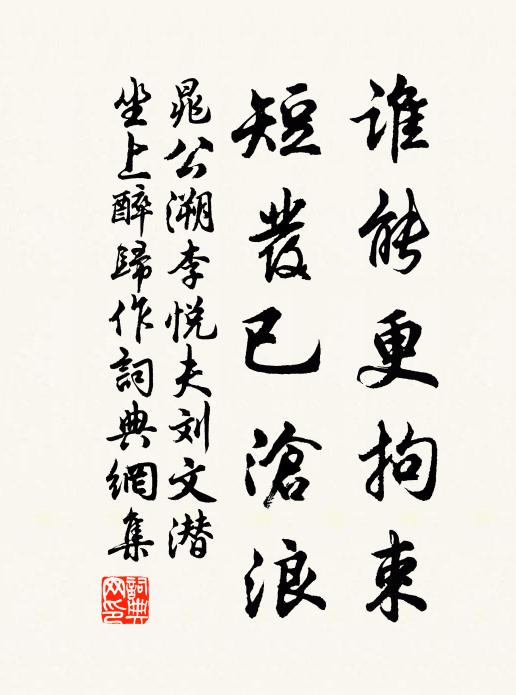 谁能更拘束
短發已滄浪
晁公溯李悦夫刘文潜
坐上醉歸作詞典網集
詞典網印